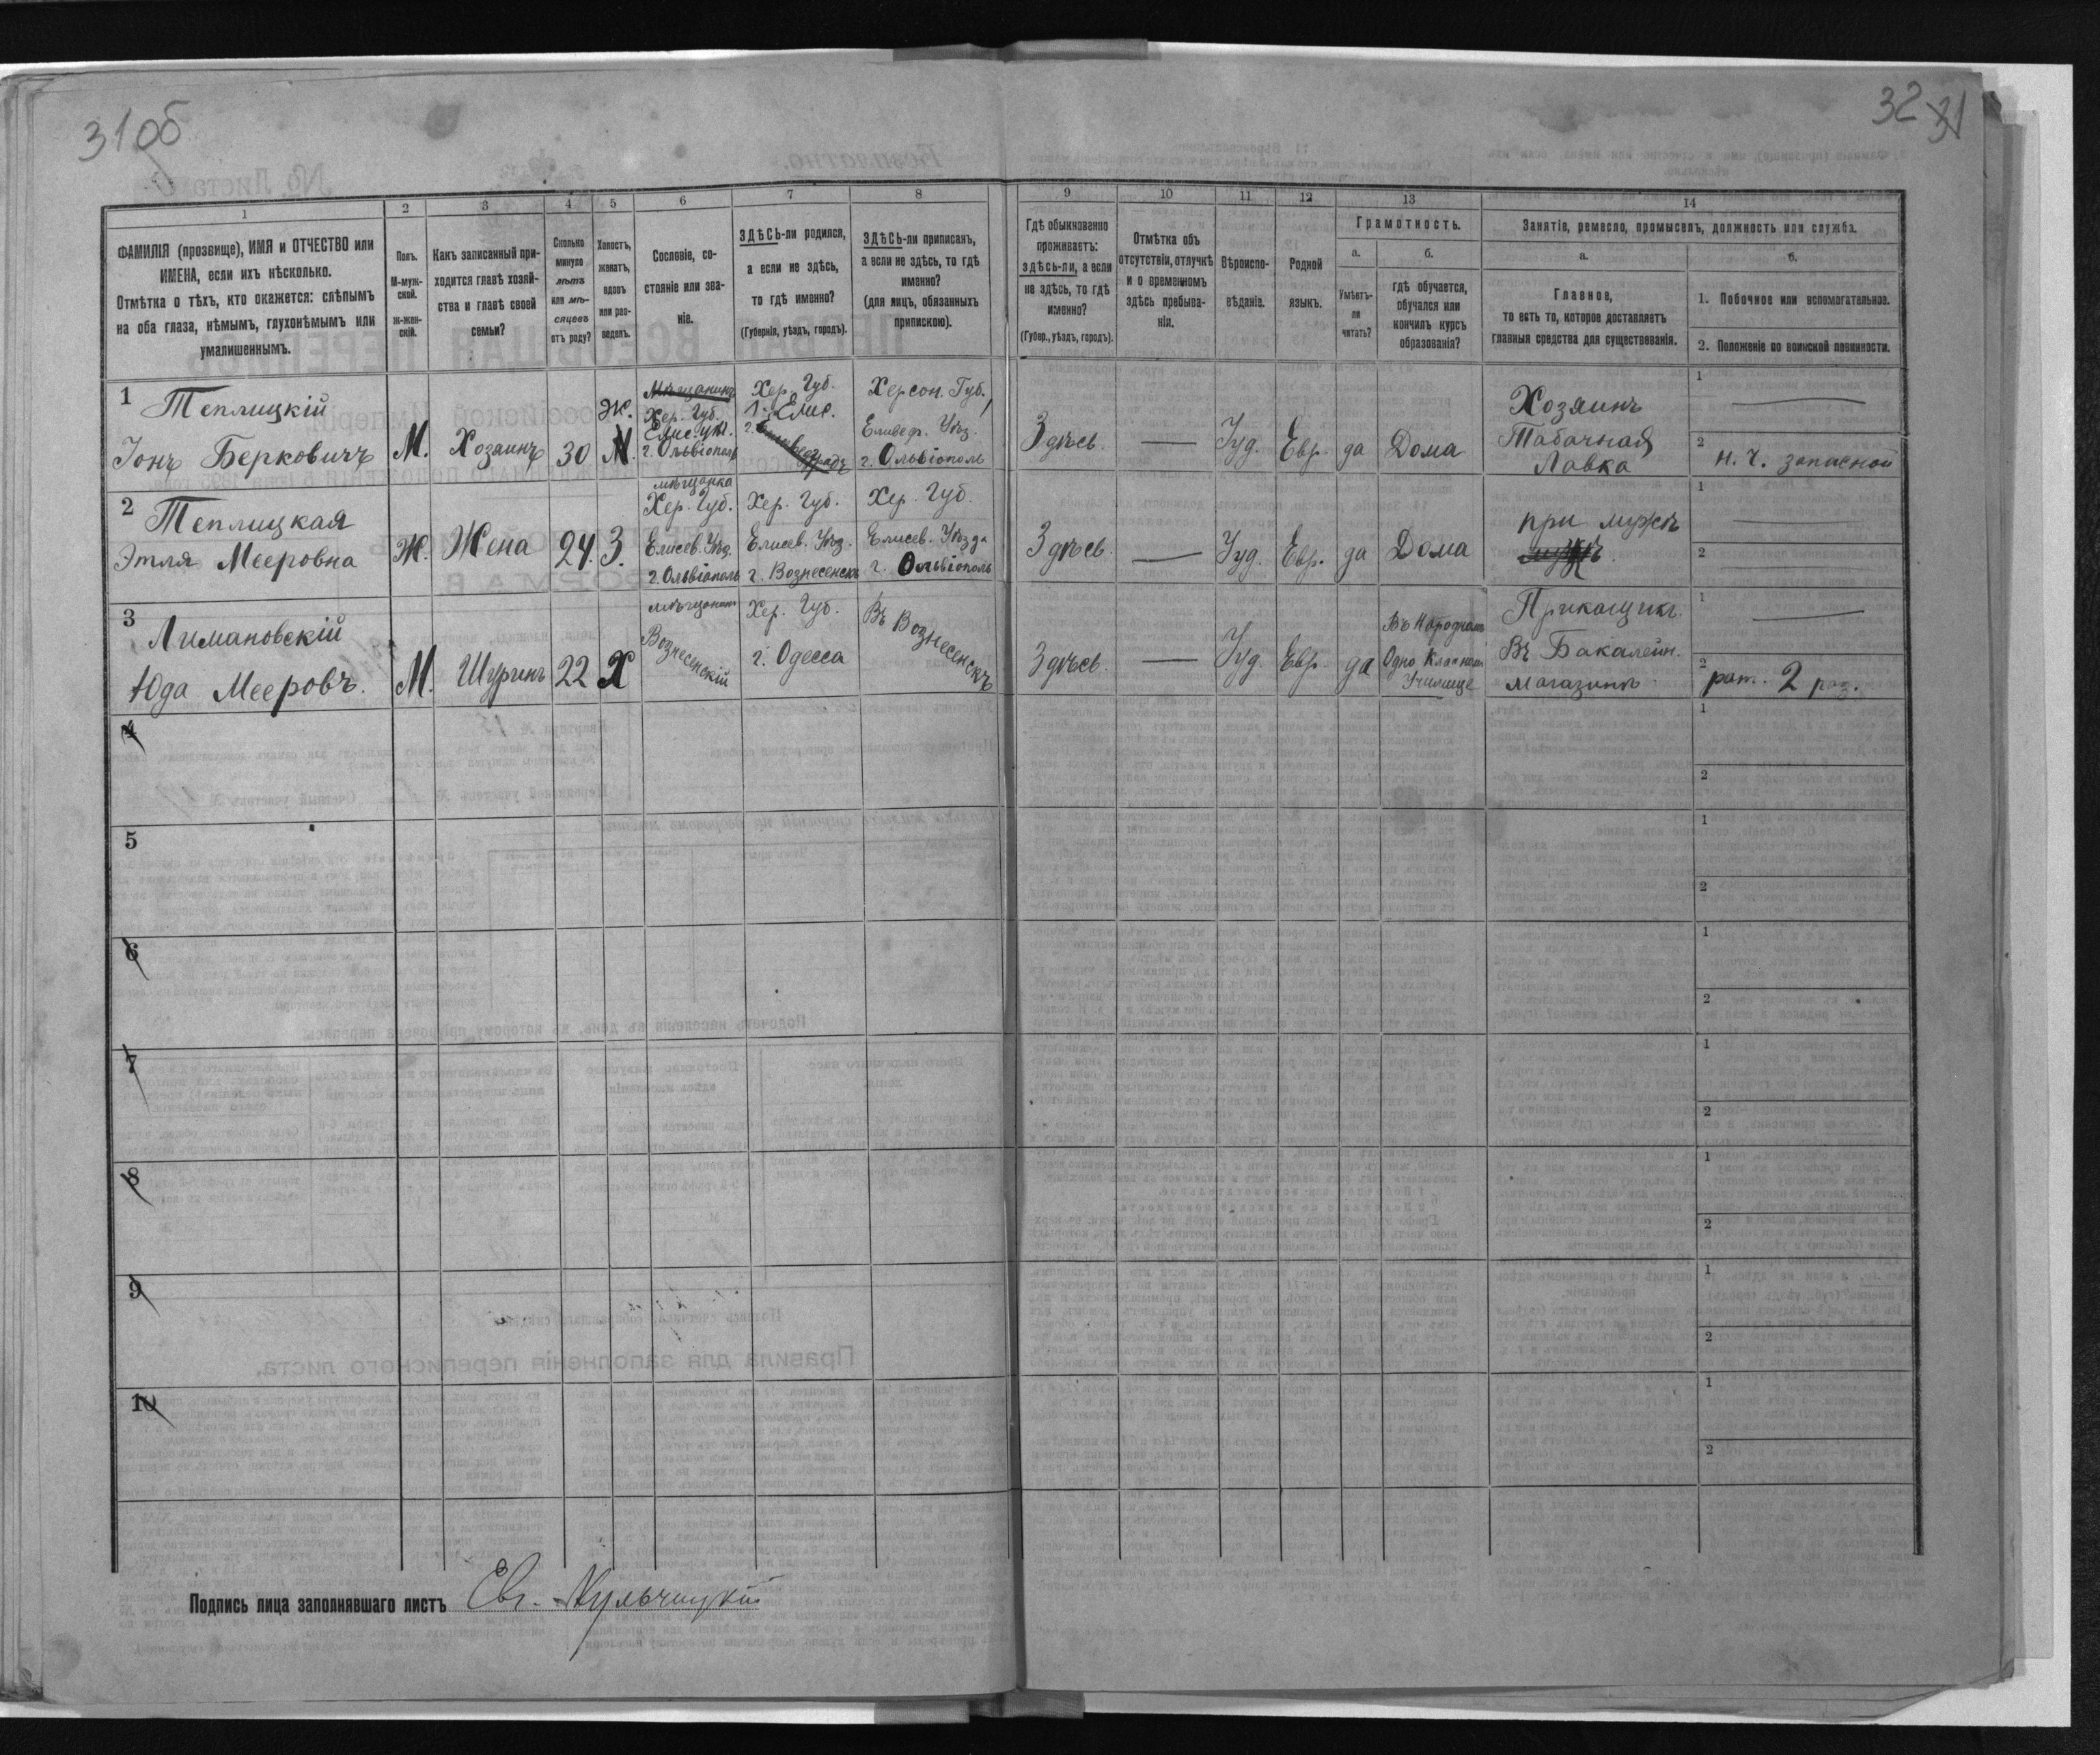 310б
32 31
1
2
3
4
5
6
7
8
9
10
11
12
13
14
ФАМИЛІЯ (прозвище), ИМЯ и ОТЧЕСТВО или
ИМЕНА, если ихъ нѣсколько.
Отмѣтка о тѣхъ, кто окажется: слѣпымъ
на оба глаза, нѣмымъ, глухонѣмымъ или
умалишеннымъ.
Полъ.
М-муж-
ской.
Ж-жен-
скій.
Какъ записанный при-
ходится главѣ хозяй-
ства и главѣ своей
семьи?
Сколько
минуло
лѣтъ
или мѣ-
сяцевъ
отъ роду?
Холостъ,
женатъ,
вдовъ
или раз-
веденъ.
Сословіе, со-
стояніе или зва-
ніе.
ЗДѢСЬ-ли родился,
а если не здѣсь,
то гдѣ именно?
(Губернія, уѣздъ, городъ).
ЗДѢСЬ-ли приписанъ,
а если не здѣсь, то гдѣ
именно?
(для лицъ, обязанныхъ
припискою).
Гдѣ обыкновенно
проживаетъ:
здѣсь-ли, а если
не здѣсь, то гдѣ
именно?
(Губер., уѣздъ, городъ).
Отмѣтка объ
отсутствіи, отлучкѣ
и о временномъ
здѣсь пребыва-
ніи.
Вѣроиспо-
вѣданіе.
Родной
языкъ.
Грамотность.
а.
Умѣетъ-
ли
читать?
б.
гдѣ обучается,
обучался или
кончилъ курсъ
образованія?
Занятіе, ремесло, промыселъ, должность или служба.
а.
Главное,
то есть то, которое доставляетъ
главныя средства для существованія.
б.
1. Побочное или вспомогательное.
2. Положеніе по воинской повинности.
1
Теплицкій
Іонъ Берковичъ
М.
Хозяинъ
30
Ж.
Мѣщанинъ
Хер. Губ.
Елис. уѣз.
г. Ольвіополь
Хер. Губ.
г. Елис.
Херсон. Губ.,
Елисер. Уѣз.
г. Ольвіополь
Здѣсь
—
Іуд.
Евр.
да
Дома
Хозяинъ
Табачная
Лавка
1
—
2
н. ч. запасной
2
Теплицкая
Этля Мееровна
Ж.
Жена
24.
З.
мѣщанка
Хер. Губ.
Елисев. Уѣзд.
г. Ольвіополь
Хер. Губ.
Елисев. Уѣз.
г. Вознесенскъ
Хер. Губ.
Елисев. Уѣзда
г. Ольвіополь
Здѣсь
—
Іуд.
Евр.
да
Дома
при мужѣ
1
—
2
—
3
Лимановскій
Юда Мееровъ.
М.
Шуринъ
22
Х
мѣщанин
Вознесенскій
Хер. Губ.
г. Одесса
Въ Вознесенскъ
Здѣсь
—
Іуд.
Евр.
да
Въ Народномъ
Одно Классном
Училище
Прикащикъ
Въ Бакалейн.
магазинѣ
1
—
2
рат. 2 раз.
4
1
2
5
1
2
6
1
2
7
1
2
8
1
2
9
1
2
10
1
2
Подпись лица заполнявшаго листъ Евг. Кульчицкій